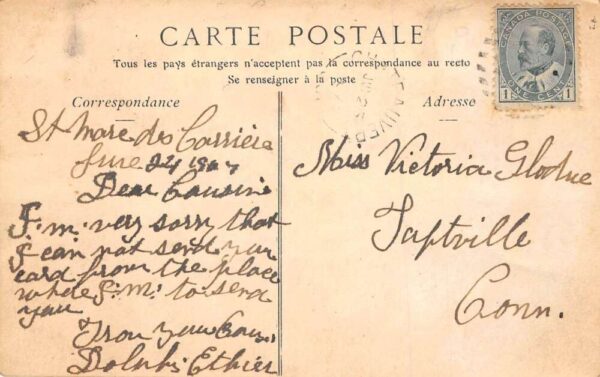 CARTE POSTALE
Tous les pays étrangers n'acceptent pas la correspondance au recto
Se renseigner à la poste
Correspondance
Adresse
CANADA POSTAGE
1 ONE CENT 1
St Marc des Carrière
June 24 1907
Dear Cousin
I'm very sorry that
I can not send you
card from the place
where I'm to send
you
From your Cousin
Ethier
Miss Victoria
Taftville
Conn.